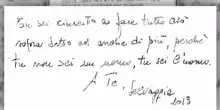 Tu sei riuscito a fare tutto ciò
sopra detto ed anche di più, perchè
tu non sei un uomo, tu sei l'uomo.
A Te, Selvaggia
2013